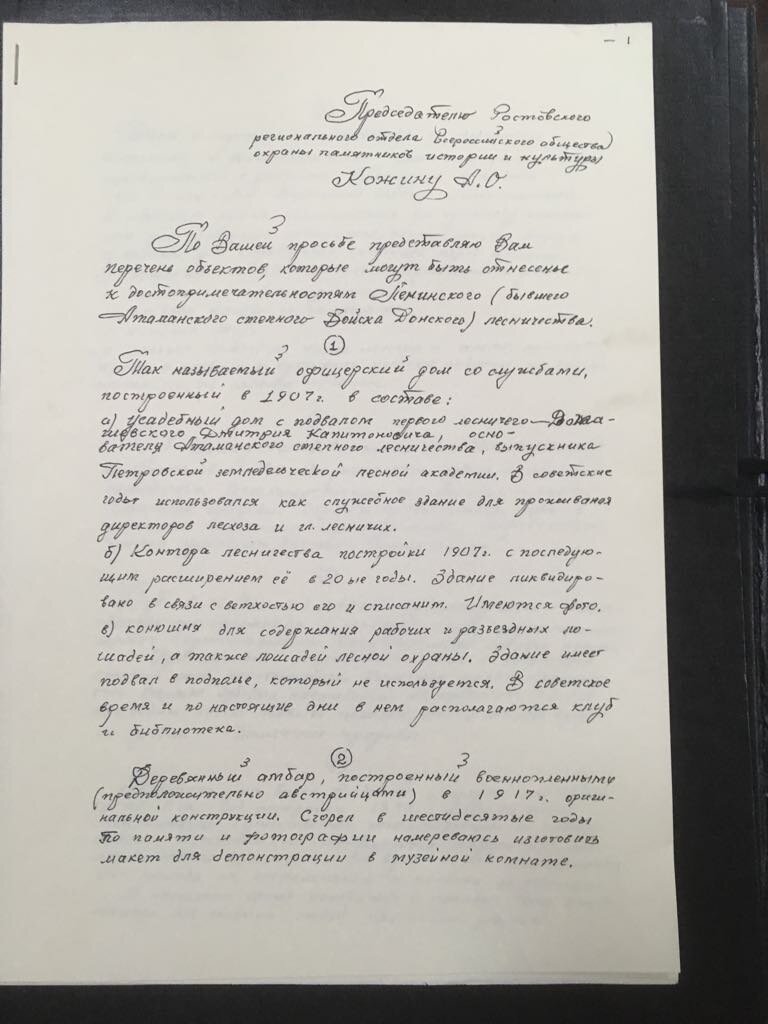 – 1
Председателю Ростовского
регионального отдела Всероссийского общества
охраны памятников истории и культуры
Кожину А.О.
По Вашей просьбе представляю Вам
перечень объектов, которые могут быть отнесены
к достопримечательностям Ленинского (бывшего
Атаманского степного Войска Донского) лесничества.
1
Так называемый офицерский дом со службами,
построенный в 1907 г. в составе:
а) усадебный дом с подвалом первого лесничего –
Дмитрия Капитоновича, осно-
вателя Атаманского степного лесничества, выпускника
Петровской земледельческой лесной академии. В советские
годы использовался как служебное здание для проживания
директоров лесхоза и гл. лесничих.
б) Контора лесничества постройки 1907 г. с последую-
щим расширением её в 20ые годы. Здание ликвидиро-
вано в связи с ветхостью его и списаним. Имеются фото.
в) конюшня для содержания рабочих и разъездных ло-
шадей, а также лошадей лесной охраны. Здание имеет
подвал в подполье, который не используется. В советское
время и по настоящие дни в нем располагаются клуб
и библиотека.
2
Деревянный амбар, построенный военнопленными
(предположительно австрийцами) в 1917 г. ориги-
нальной конструкции. Сгорел в шестидесятые годы
По памяти и фотографии намереваюсь изготовить
макет для демонстрации в музейной комнате.